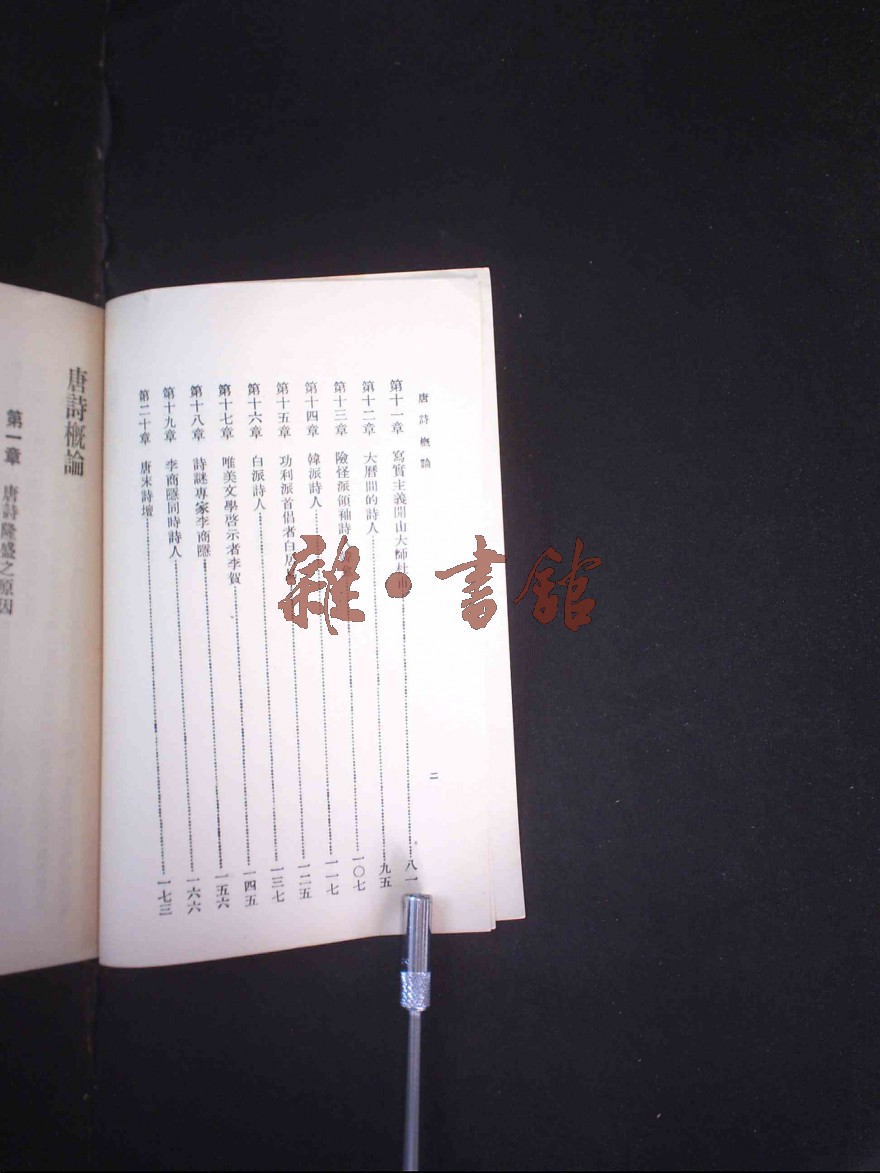 唐詩概論
二
第十一章 寫實主義開山大師杜甫……八一
第十二章 大曆間的詩人……九五
第十三章 險怪派領袖詩……一〇七
第十四章 韓派詩人……一一七
第十五章 功利派首倡者白居……一二五
第十六章 白派詩人……一三七
第十七章 唯美文學啓示者李賀……一四五
第十八章 詩謎專家李商隱……一五六
第十九章 李商隱同時詩人……一六六
第二十章 唐末詩壇……一七三
唐詩概論
第一章 唐詩隆盛之原因
雜·書館